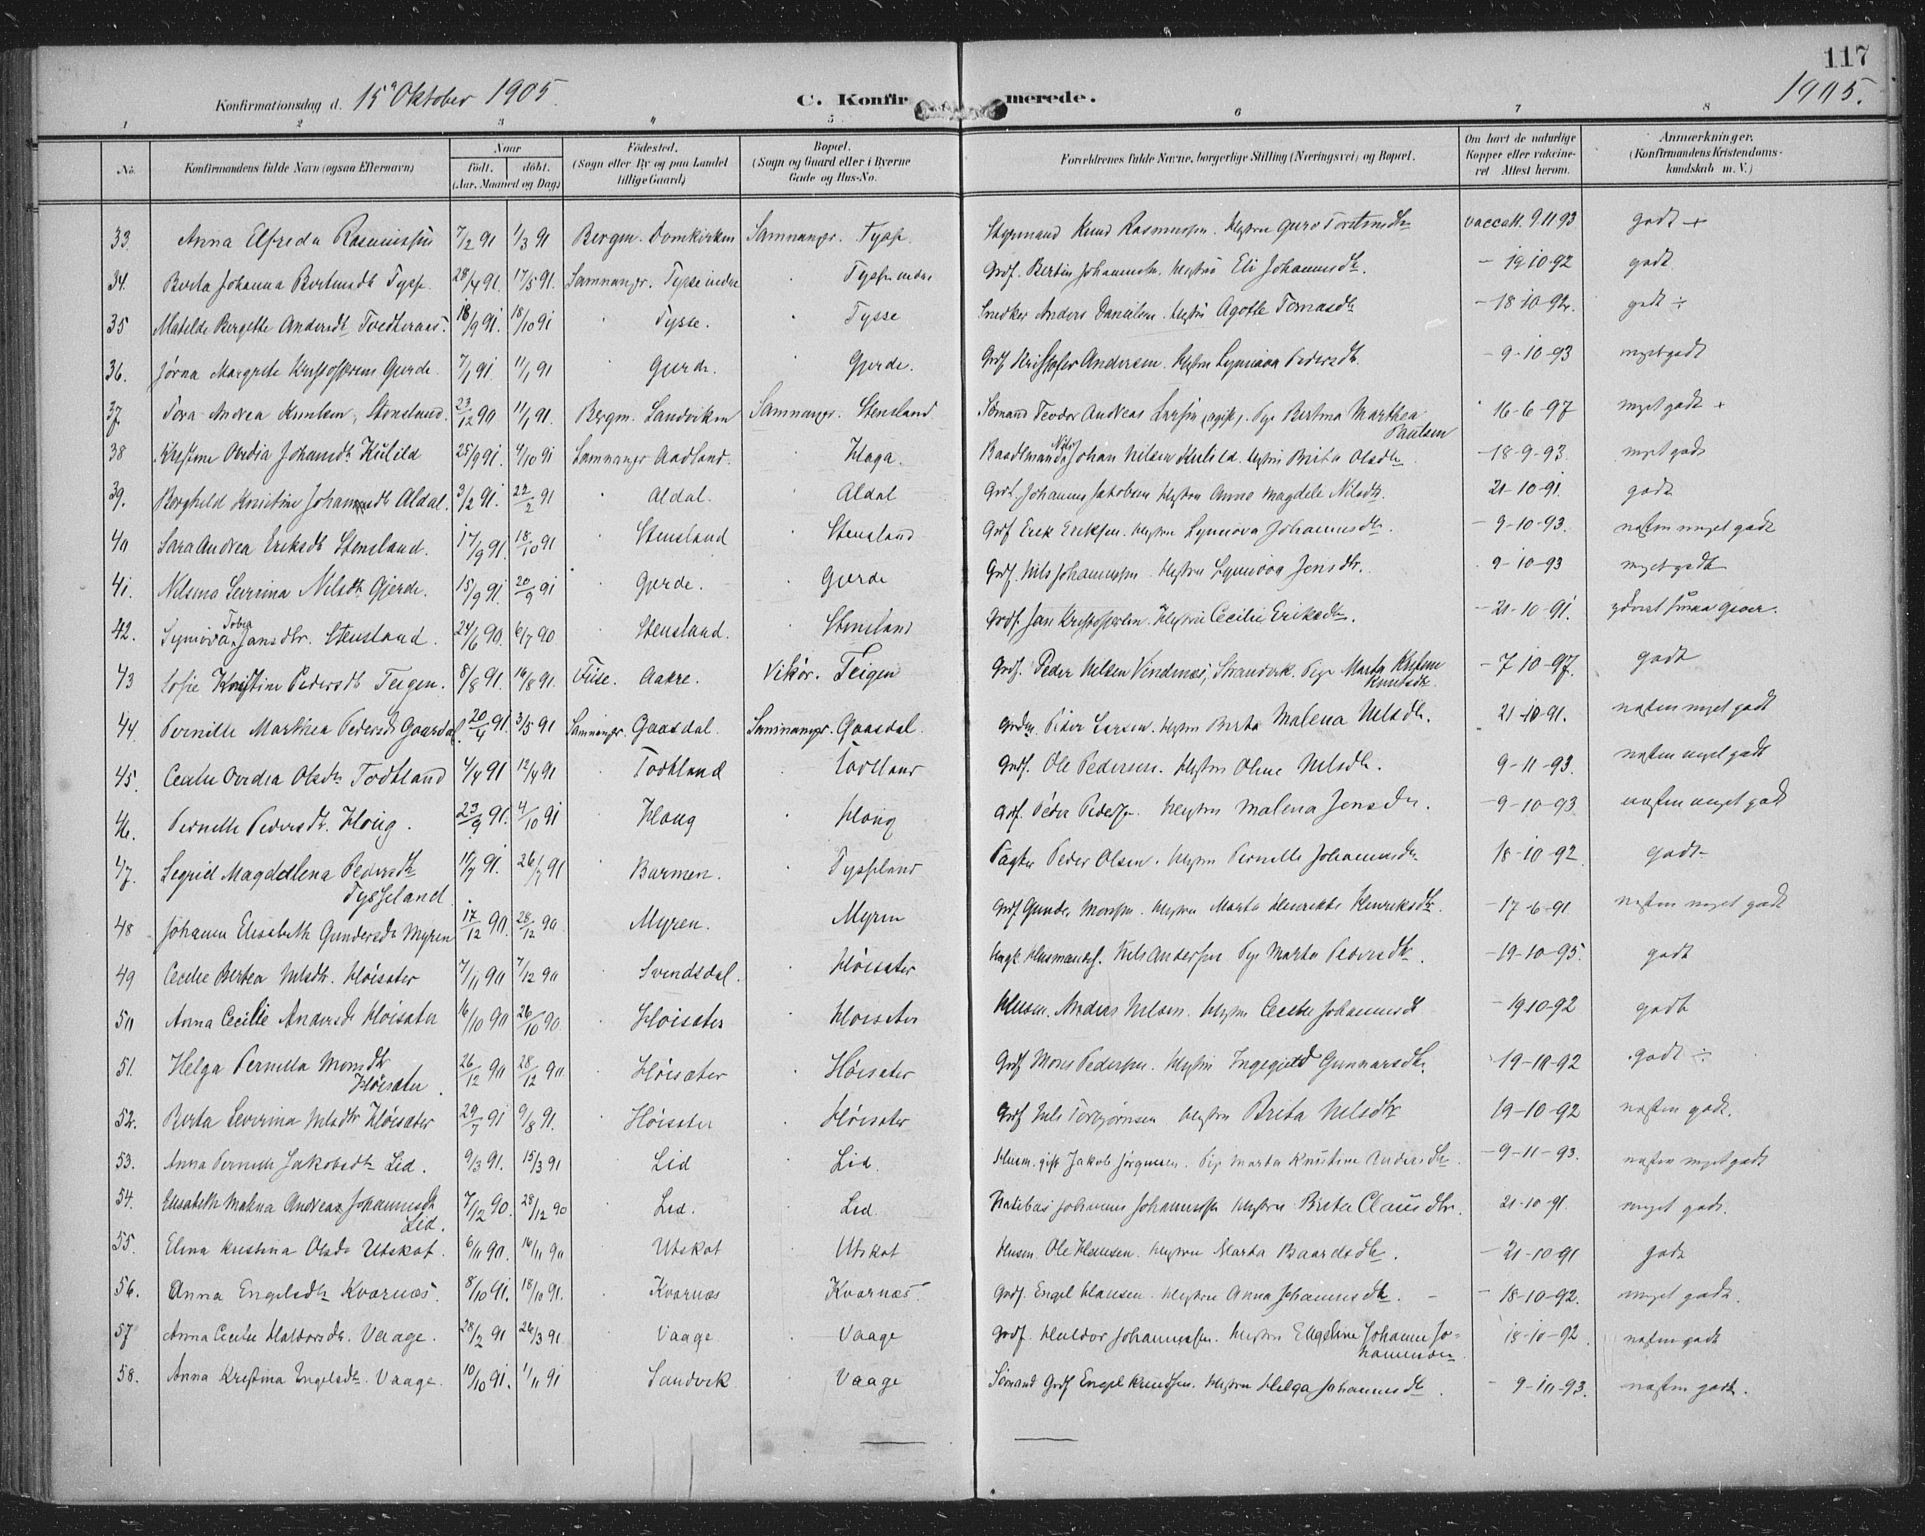 117
1905.
Konfirmationsdag d. 15de Oktober 1905.
C. Konfirmerede.
1 2 3 4 5 6 7 8
No. Konfirmandens fulde Navn (ogsaa Efternavn) Naar født. døbt. (Aar, Maaned og Dag) Fødested. (Sogn eller By og paa Landet tillige Gaard) Bopæl. (Sogn og Gaard eller i Byerne Gade og Hus-No. Forældrenes fulde Navne, borgerlige Stilling (Næringsvei) og Bopæl. Om havt de naturlige Kopper eller vakcineret. Attest herom. Anmærkninger. (Konfirmandens Kristendomskundskab m. V.)
33. Anna Elfreda Rasmussen 7/2 91 1/3 91 Bergen. Domkirken Samnangr. Tysse. Styrmand Knud Rasmussen. Hustru Guro Torstensdtr vaccatt. 9 11 93 godt +
34. Berta Johanna Bertinsdtr Tysse 28/4 91. 17/5 91. Samnangr. Tysse indre Tysse indre Grdf. Bertin Johannesen. Hustru Eli Johannesdtr. - 19 10-92 godt
35 Matilde Bergette Andersdtr Tvedteraas. 18/9 91. 18/10 91 Tysse. Tysse Snedker Anders Danielsen. Hustru Agothe Tomasdtr - 18-10-92. godt ÷
36. Jørna Margrete Kristoffersen Gjerde. 7/1 91. 11/1 91 Gjerde. Gjerde. Grdf Kristoffer Andersen. Hustru Synnøva Pedersdtr. - 9-10-93 meget godt
37 Tora Andrea Knutsen, Stensland. 23/12 90 11/1 91. Bergen. Sandviken Samnangr. Stensland Sømand Teodor Andreas Larsen, ugift, Pige Bertina Marthea Paulsen 16-6-97 meget godt +
38 Kristine Ovidia Johansdtr Kulild 25/9 91. 4/10 91 Samnangr Aadland. Haga. Baadsmand Nils Johan Nilsen Kulild. Hustru Brita Olsdtr - 18-9-93. meget godt
39. Borghild Kristine Johannesdtr Aldal. 3/2 91. 22/2 91 Aldal. Aldal Grdf. Johannes Jakobsen Hustru Anna Magdele Nilsdtr. 21-10-91. godt
40 Sara Andrea Eriksdtr Stensland. 17/9 91. 18/10 91 Stensland Stensland Grdf Erik Eriksen. Hustru Synnøva Johannesdtr. - 9-10-93. næsten meget godt
41. Nelsine Severina Nilsdtr Gjerde. 15/9 91. 20/9 91 Gjerde. Gjerde Grdf. Nils Johannessen Hustru Synnøva Jensdtr. 9-10-93 meget godt
42. Synnøva Tobea Jansdtr. Stensland. 24/6 90. 6/7 90 Stensland. Stensland Grdf. Jan Kristoffersen. Hustru Cecilie Eriksdtr. - 21-10-91.
43 Sofie Kristine Pedersdtr Teigen. 8/8 91. 16/8 91. Fuse. Aakre. Vikør. Teigen Grdf. Peder Nelsen Vindenes, Strandvik. Pige Marta Kristine Knutsdtr. - 7 10-97. godt
44. Pernille Marthea Pedersdtr Gaasdal. 20/4 91. 3/5 91 Samnangr. Gaasdal. Samnangr. Gaasdal. Peder Larsen. Hustru Berta Malena Nelsdtr. 21-10-91. næsten meget godt
45. Cecilie Ovidia Olsdtr Todtland 4/4 91 12/4 91 Todtland Todtland Grdf. Ole Pedersen. Hustru Oline Nelsdtr. 9-11-93. næsten meget godt
46. Pernille Pedersdtr. Houg. 23/9 91. 4/10 91 Houg Houg Grdf. Peder Peders. Hustru Malena Jensdtr. - 9-10-93 næsten meget godt
47. Sigrid Magdelena Pedersdtr Tysseland. 11/7 91. 26/7 91 Barmen. Tysseland Pagter Peder Olsen. Hustru Pernille Johannesdtr 18-10-92. godt
48 Johanna Elisabeth Gundersdtr Myren 17/12 90. 28/12 90 Myren. Myren Grdf Gunder Monsen. Hustru Marta Henrikke Henriksdtr. - 17-6-91 næsten meget godt
49 Cecilie Bertea Nelsdtr. Høisæter 7/11 90 7/12 90 Svendsdal. Høisæter Nils Andersen Pige Marta Pedersdtr. - 19-10-95. godt
50 Anna Cecilie Andersdtr Høisæter 16/10 90 26/10 90. Høisæter Høisæter Husm. Andreas Nelsen. Hustru Cecilie Johannesdtr - 19 10-92 godt
51. Helga Pernilla Monsdtr Høisæter. 26/12 90 28/12 90 Høisæter Høisæter Grdf Mons Pedersen. Hustru Ingegjerd Gunnarsdtr. 19-10-92 godt ÷
52. Berta Severina Nelsdtr Høisæter 29/7 91 9/8 91. Høisæter Høisæter Grdf Nils Torbjørnsen Hustru Brita Nelsdtr 19-10-92 næsten godt.
53. Anna Pernille Jakobsdtr Lid. 9/3 91. 15/3 91 Lid Lid. Husm. gift Jakob Jørgensen. Pige Marta Kristine Andersdtr. - 9-11-93. næsten meget godt
54. Elisabeth Malina Andrea Johannesdtr Lid. 7/12 90. 28/12 90 Lid. Lid Johannes Johannessen Hustru Brita Clausdtr. 21-10-91. meget godt.
55. Elina Kristina Olsdtr Utskot. 6/11 90. 16/11 90 Utskot Utskot Husm. Ole Hansen. Hustru Marta Baardsdtr. - 21-10-91 godt
56. Anna Engelsdtr Kvarnæs. 8/10 91. 18/10 91. Kvarnæs Kvarnæs. Grdf. Engel Hansen. Hustru Anna Johannesdtr. - - 18-10-92. meget godt.
57 Anna Cecilie Haldorsdtr. Vaage. 28/2 91 26/3 91. Vaage Vaage Grdf. Haldor Johannessen. Hustru Engeline Johanne Johannessen. 18-10-92. næsten godt
58. Anna Kristina Engelsdtr. Vaage. 10/10 91. 1/11 91 Sandvik Vaage Sømand Grdf Engel Knudsen. Hustru Helga Johannesdtr. - 9-10-93. næsten godt.